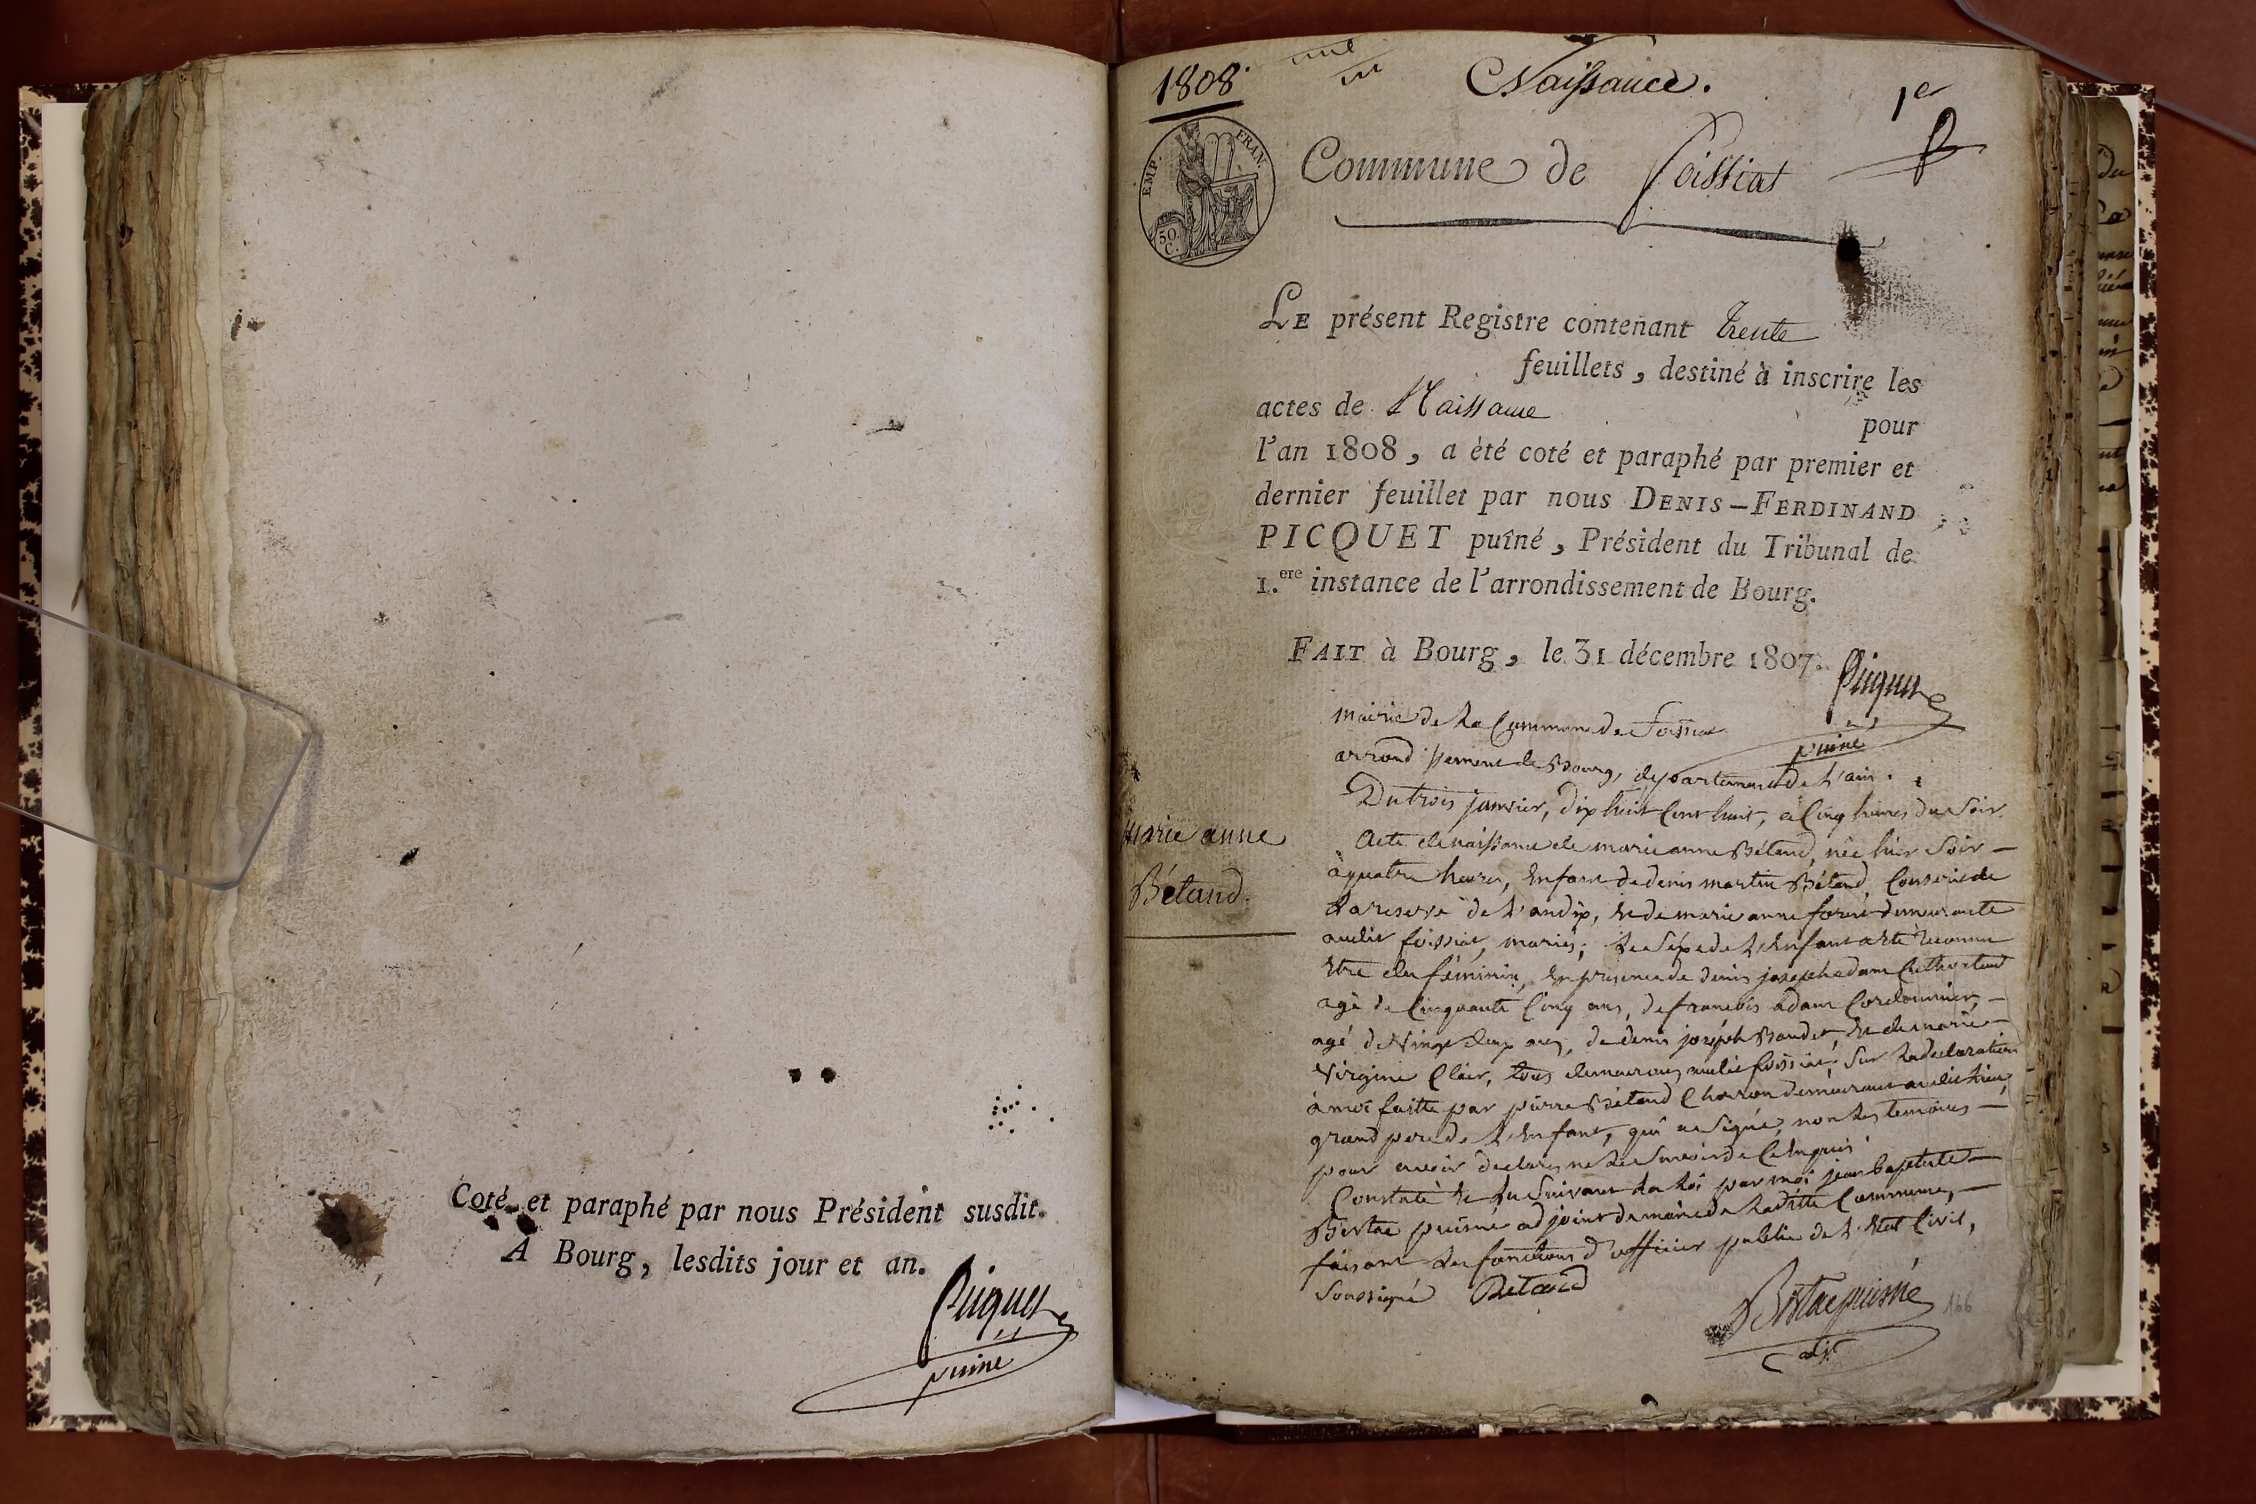 Coté et paraphé par nous Président susdit.
A Bourg, lesdits jour et an.
Picquet
puiné
1808.
Naissance.
1er
EMP. FRAN.
50 C.
Commune de Foissiat
LE présent Registre contenant trente
feuillets, destiné à inscrire les
actes de Naissance
pour
l'an 1808, a été coté et paraphé par premier et
dernier feuillet par nous DENIS-FERDINAND
PICQUET puîné, Président du Tribunal de
1.ere instance de l'arrondissement de Bourg.
FAIT à Bourg, le 31 décembre 1807.
Picquet
puiné
Marie anne
Bétand.
mairie de La Commune de Foissiat
arrondissement de Bourg, departement de L'ain.
Du trois janvier, dix huit Cent huit, a Cinq heures du Soir
Acte de naissance de marie anne Bétand, née hier Soir
à quatre heures, Enfant de denis martin Bétand, Conscrit de
La reserve de L'an dix, Et de marie anne demeurants
audit foissiat, mariés; Le Sexe de L'Enfant a été reconnu
Etre du féminin, En presence de denis joseph adam
agé de Cinquante Cinq ans, de francois adam Cordonnier,
agé de Vingt deux ans, de denis joseph Baudet Et de marie
Virginie Clair, tous demeurans audit foissiat; Sur La declaration
à moi faitte par pierre Bétand Charron demeurant audit Lieu,
grand pere de L'Enfant, qui a Signé, non Les temoins
pour avoir declarés ne Le Savoir de Ce Enquis
Constaté Et Lu Suivant La Loi par moi jean baptiste
puisné adjoint du maire de Laditte Commune,
faisant Les fonctions d'officier public de L'Etat Civil,
Soussigné Betand
puisné
adjt
166